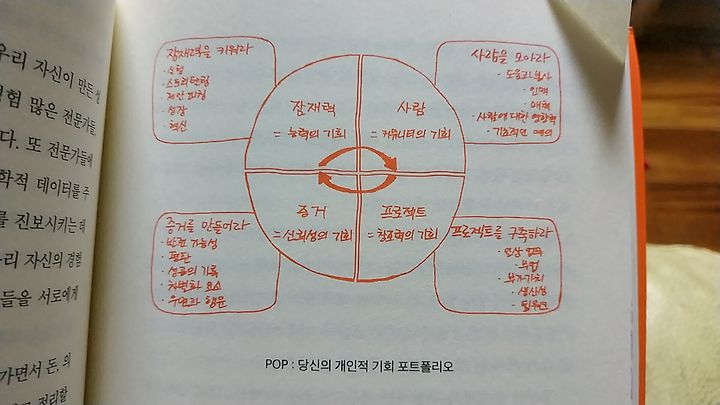 우리 자신이 만든
경험 많은 전문가들
다. 또 전문가들에
학적 데이터를 주
를 진보시키는 데
우리 자신의 경험
들을 서로에게
가면서 돈, 의
잠재력을 키워라
· 스토리텔링
· 제안 피칭
· 성장
· 혁신
잠재력
= 능력의 기회
사람을 모아라
· 도움과 봉사
· 인맥
· 매력
· 사람에 대한 영향력
· 기초적인 예의
사람
= 커뮤니티의 기회
증거를 만들어라
· 반전 가능성
· 평판
· 성공의 기록
· 차별화 요소
· 우연과 행운
증거
= 신뢰성의 기회
프로젝트를 구축하라
· 연상 업무
· 부업
· 부가가치
· 생산성
· 팀워크
프로젝트
= 창조력의 기회
POP : 당신의 개인적 기회 포트폴리오